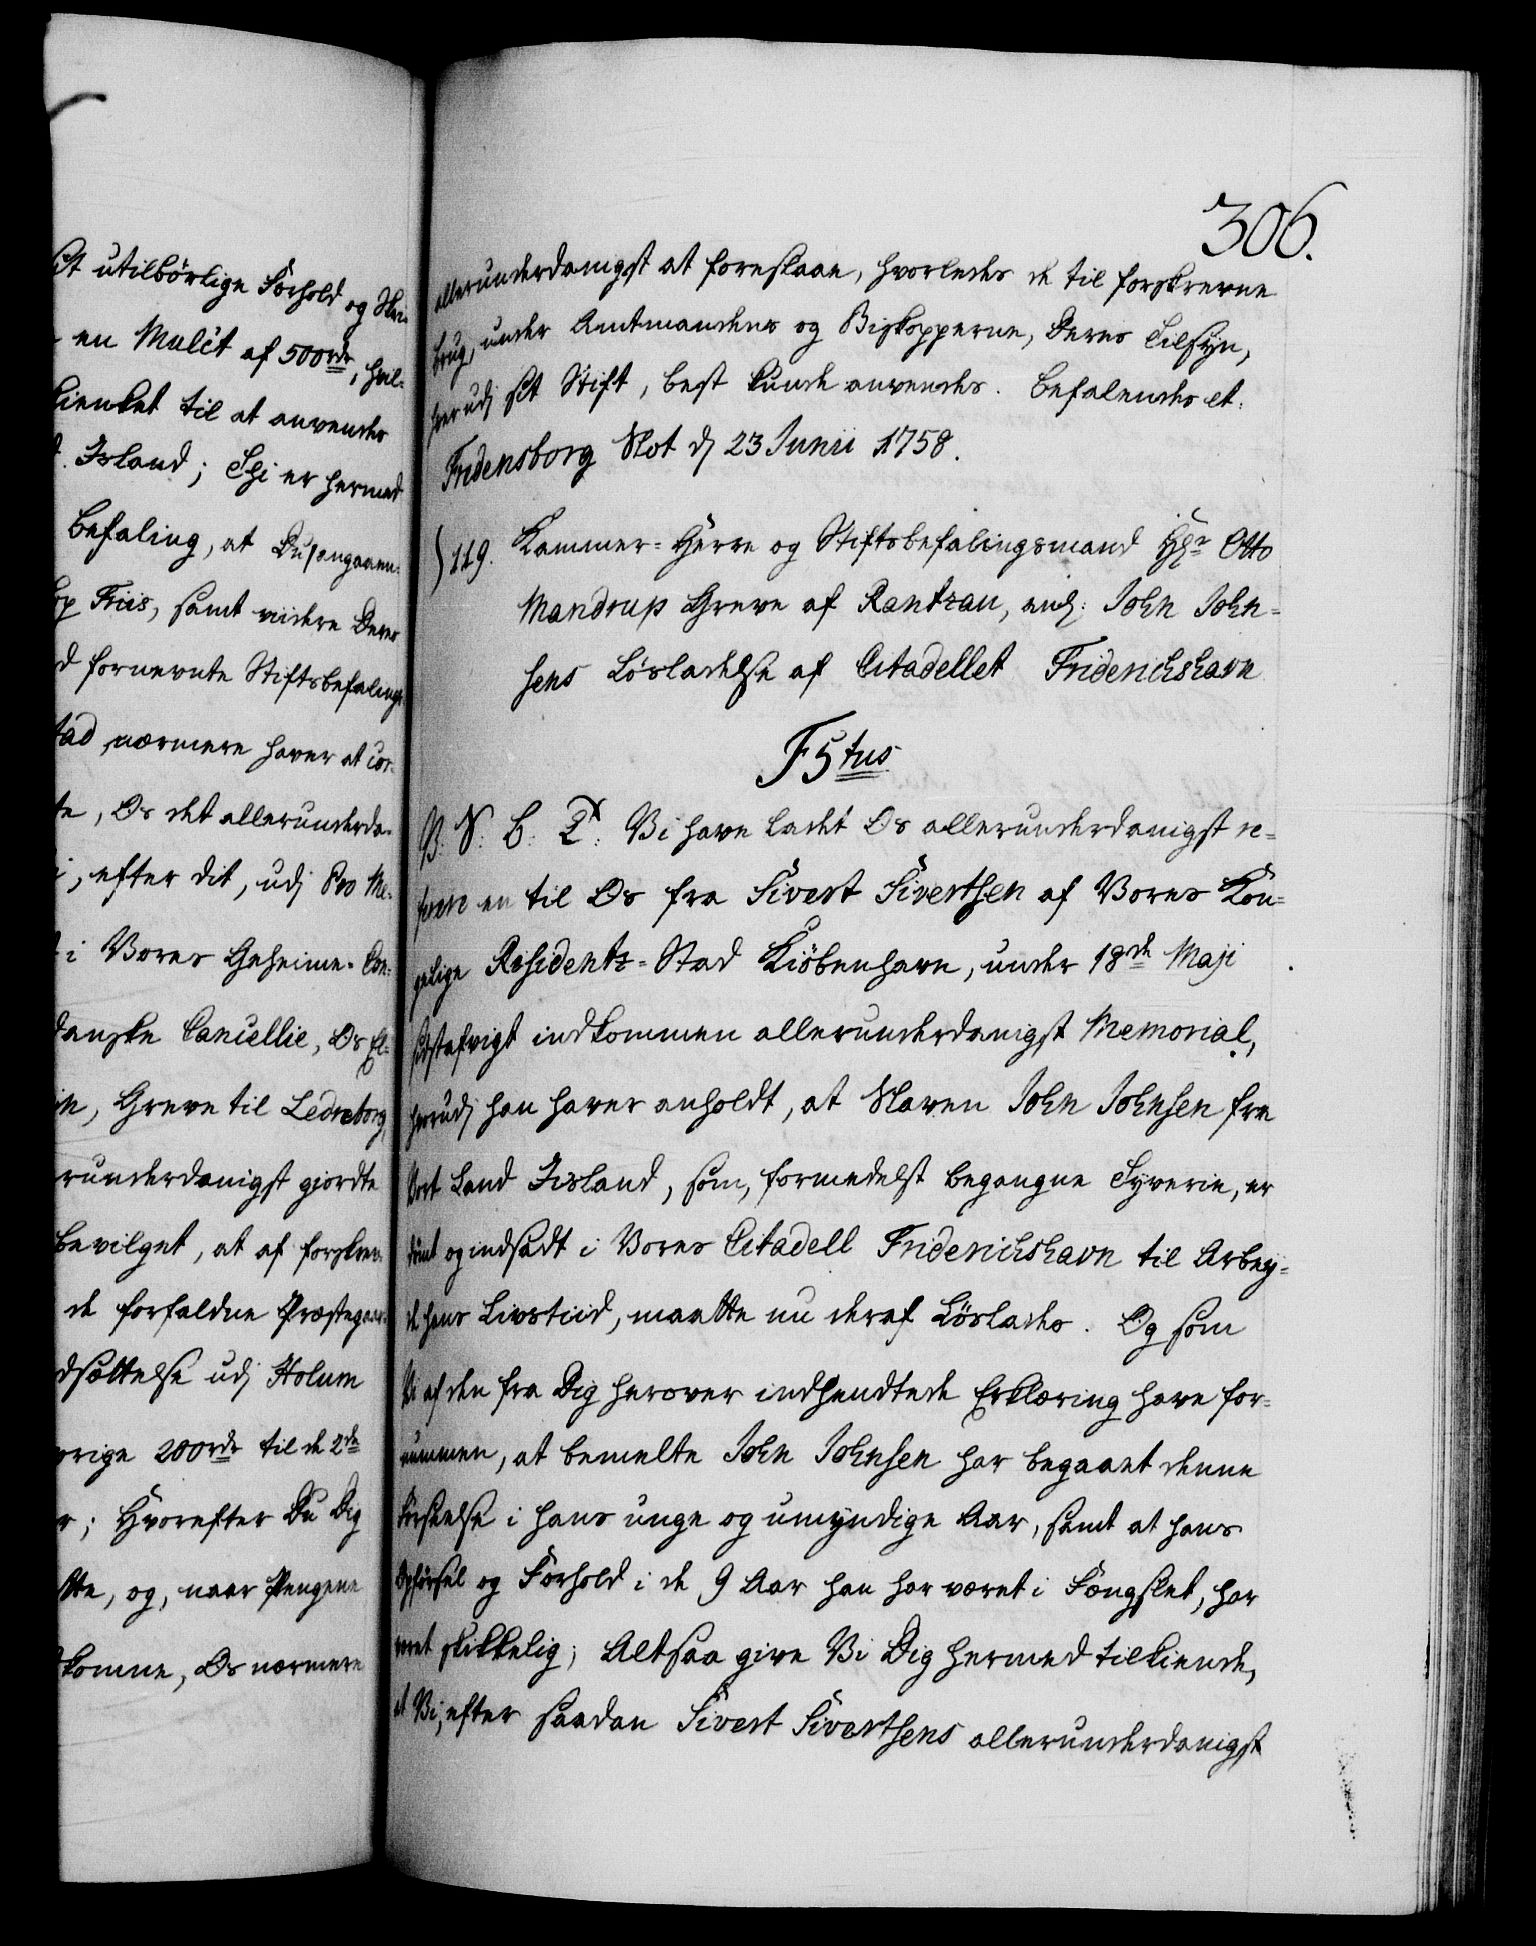 utilbørlige Forhold og
en Mulct af 500 rdr, hvil-
kienket til at anvendes
Island; Thi er hermed
Befaling, at Du, angaaen-
Friis, samt viidere Deres
fornevnte Stiftsbefalings
tad, nærmere haver at cor-
te, Os det allerunderda-
i, efter dit, udj Pro Me-
i Vores Geheime-Con-
danske Cancellie, Os El-
n, Greve til Ledreborg,
runderdanigst giordte
bevilget, at af forskrev-
de forfaldne Præstegaar-
dsættelse udj Holum
vrige 200 rdr til de 2de
r; Hvorefter Du Dig
tte, og, naar Pengene
komne, Os nærmere
306.
allerunderdanigst at foreslaae, hvorledes de til forskrevne
brug, under Amtmandens og Biskopperne, Deres Tilsyn,
hver udj sit Stift, best kunde anvendes. Befalendes et.
Fridensborg Slot dj 23 Junii 1758.
119. Kammer-Herre og Stiftsbefalingsmand Hr Otto
Mandrup Greve af Rantzau, anl: John John-
sens Løsladelse af Citadellet Friderichshavn
F5tus
V. S. G. T. Vi have ladet Os allerunderdanigst re-
ferere en til Os fra Sivert Sivertsen af Vores Kon-
gelige Residentz-Stad Kiøbenhavn, under 18de Maji
sidstafvigt indkommen allerunderdanigst Memorial,
hvorudj han haver anholdt, at Slaven John Johnsen fra
Vort Land Island, som, formedelst begangne Tyverie, er
dømt og indsadt i Vores Citadell Friderichshavn til Arbey-
de hans Livstiid, maatte nu deraf Løslades. Og som
Vi af den fra Dig herover indhendtede Erklæring have for-
nummen, at bemelte John Johnsen har begaaet denne
Forseelse i hans unge og umyndige Aar, samt at hans
Opførsel og Forhold i de 9 Aar han har været i Fængslet, har
været skikkelig; Altsaa give Vi Dig hermed tilkiende,
at Vi, efter saadan Sivert Sivertsens allerunderdanigst